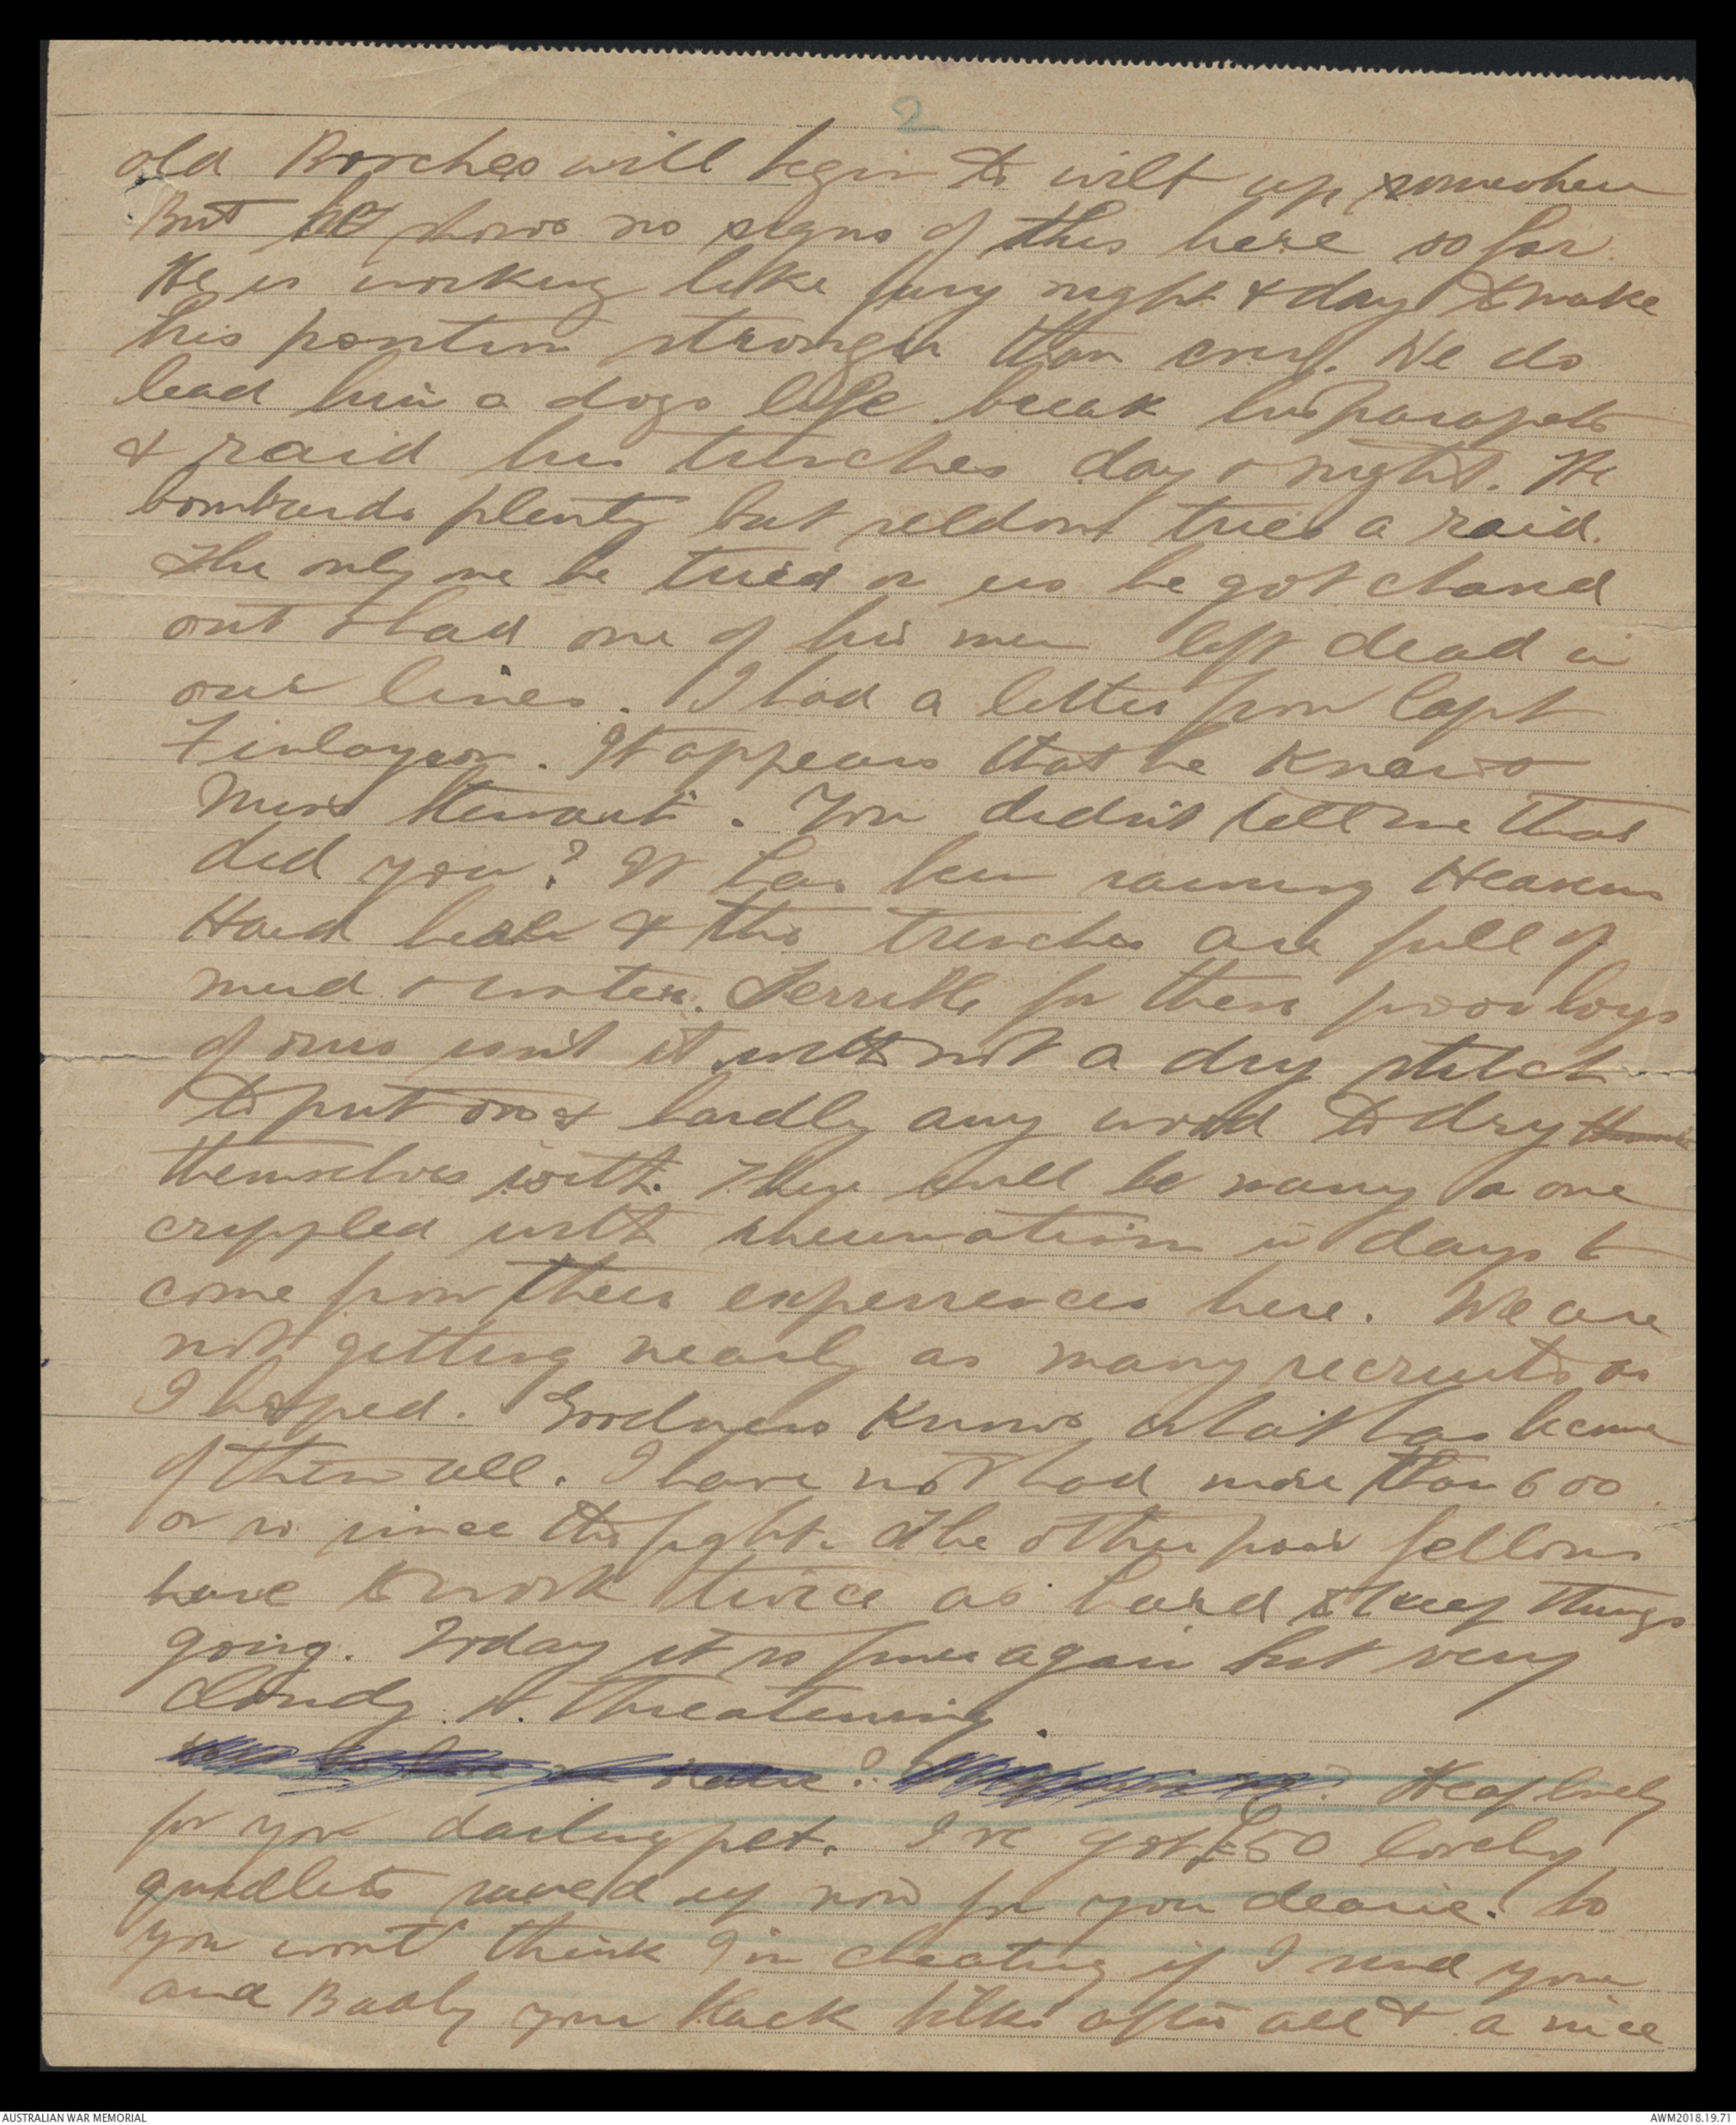 2
old Bosches will begin to wilt up somewhere
But he shows no signs of this here so far.
He is working like fury night & day to make
his position stronger than ever. We do
lead him a dogs life break his parapets
& raid his trenches day & night. He
bombards plenty but seldom tries a raid.
The only one he tried on us he got chased
out & had one of his men left dead in
our lines. I had a letter from Capt
Finlayson. It appears that he knows
Miss Stewart. You didn't tell me that
did you? It has been raining Heavens
Hard here & the trenches are full of
mud & water. Terrible for these poor boys
of ours isn't it with not a dry stitch
to put on & hardly any wood to dry
themselves with. There will be many a one
crippled with rheumatism in days to
come from their experiences here. We are
not getting nearly as many recruits as
I hoped. Goodness knows what has become
of them all. I have not had more than 600
or so since the fight. The other poor fellows
have to work twice as hard to keep things
going. Today it is fine again but very
cloudy & threatening.
? ? Heap lovely
for you darling pet. I've got £50 lovely
quidlets saved up now for you dearie. So
you wont think I'm cheating if I send you
and Baaly your black silks after all & a nice
AUSTRALIAN WAR MEMORIAL
AWM2018.19.71